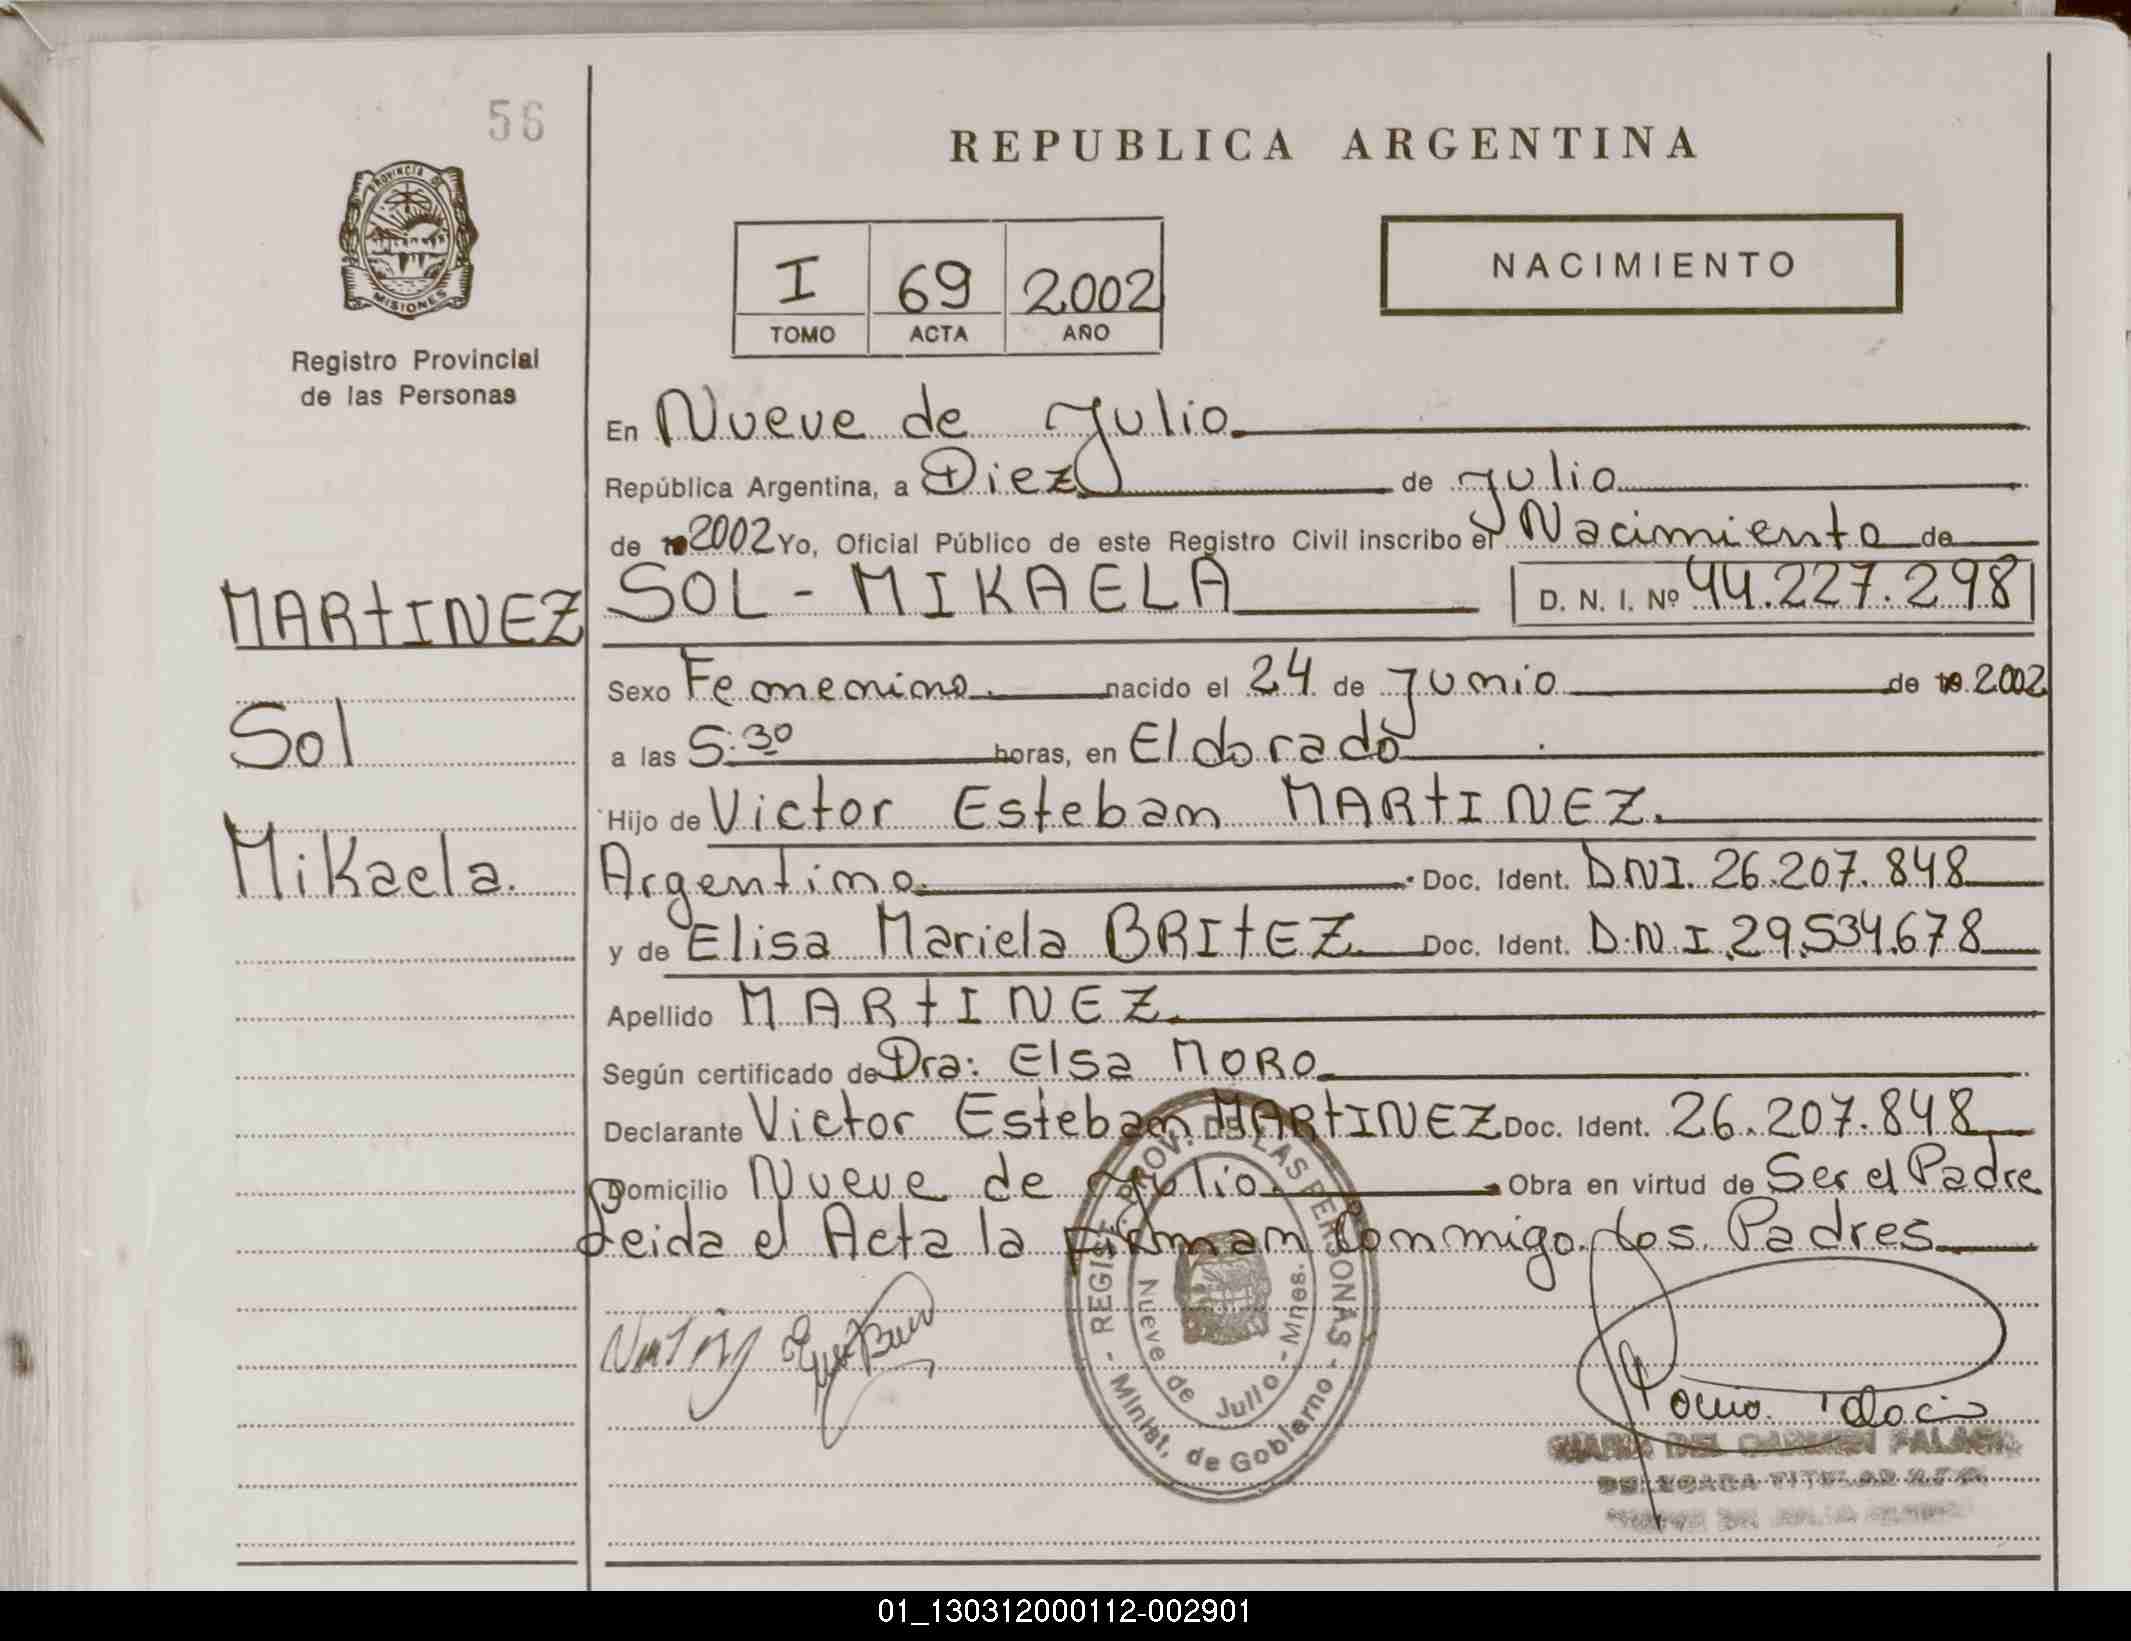 56
REPUBLICA ARGENTINA
PROVINCIA DE
MISIONES
Registro Provincial
de las Personas
I 69 2002
TOMO ACTA AÑO
NACIMIENTO
En Nueve de Julio
República Argentina, a Diez de Julio
de 2002 Yo, Oficial Público de este Registro Civil inscribo el Nacimiento de
SOL - MIKAELA D. N. I. Nº 44.227.298
MARTINEZ
Sol
Mikaela.
Sexo Femenino. nacido el 24 de Junio de 2002
a las 5:30 horas, en Eldorado
Hijo de Victor Esteban MARTINEZ.
Argentino. Doc. Ident. DNI. 26.207.848
y de Elisa Mariela BRITEZ Doc. Ident. D.N.I. 29.534.678
Apellido MARTINEZ.
Según certificado de Dra: Elsa MORO
Declarante Victor Esteban MARTINEZ Doc. Ident. 26.207.848
Domicilio Nueve de Julio. Obra en virtud de Ser el Padre
Leida el Acta la Firman Conmigo Los Padres
REGIST. PROV. DE LAS PERSONAS - Minist. de Gobierno -
Nueve de Julio - Mnes.
MARIA DEL CARMEN
DELEGADA TITULAR
01_130312000112-002901